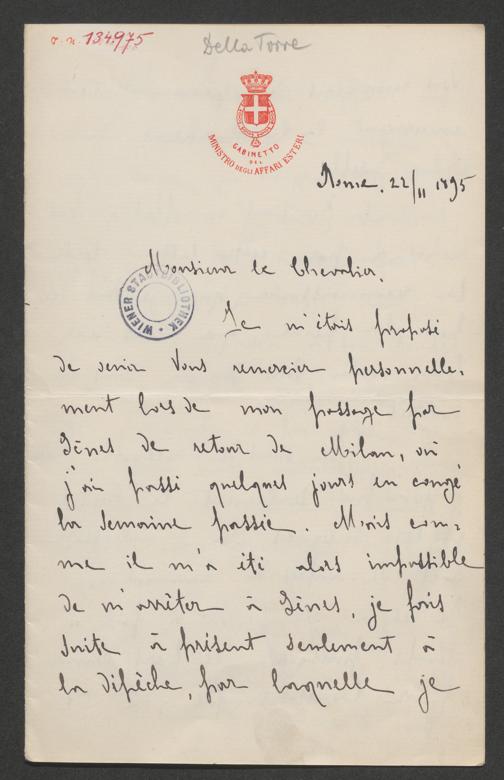 J. N. 134.975
Della Torre
GABINETTO
DEL
MINISTRO DEGLI AFFARI ESTERI
Rome. 22/11 1895
Monsieur le Chevalier.
WIENER STADTBIBLIOTHEK
Je m'étais proposé
de venir Vous remercier personnelle-
ment lors de mon passage par
Gênes de retour de Milan, où
j'ai passé quelques jours en congé
la semaine passée. Mais com-
me il m'a été alors impossible
de m'arrêter à Gênes, je fais
suite à présent seulement à
la dépêche, par laquelle je